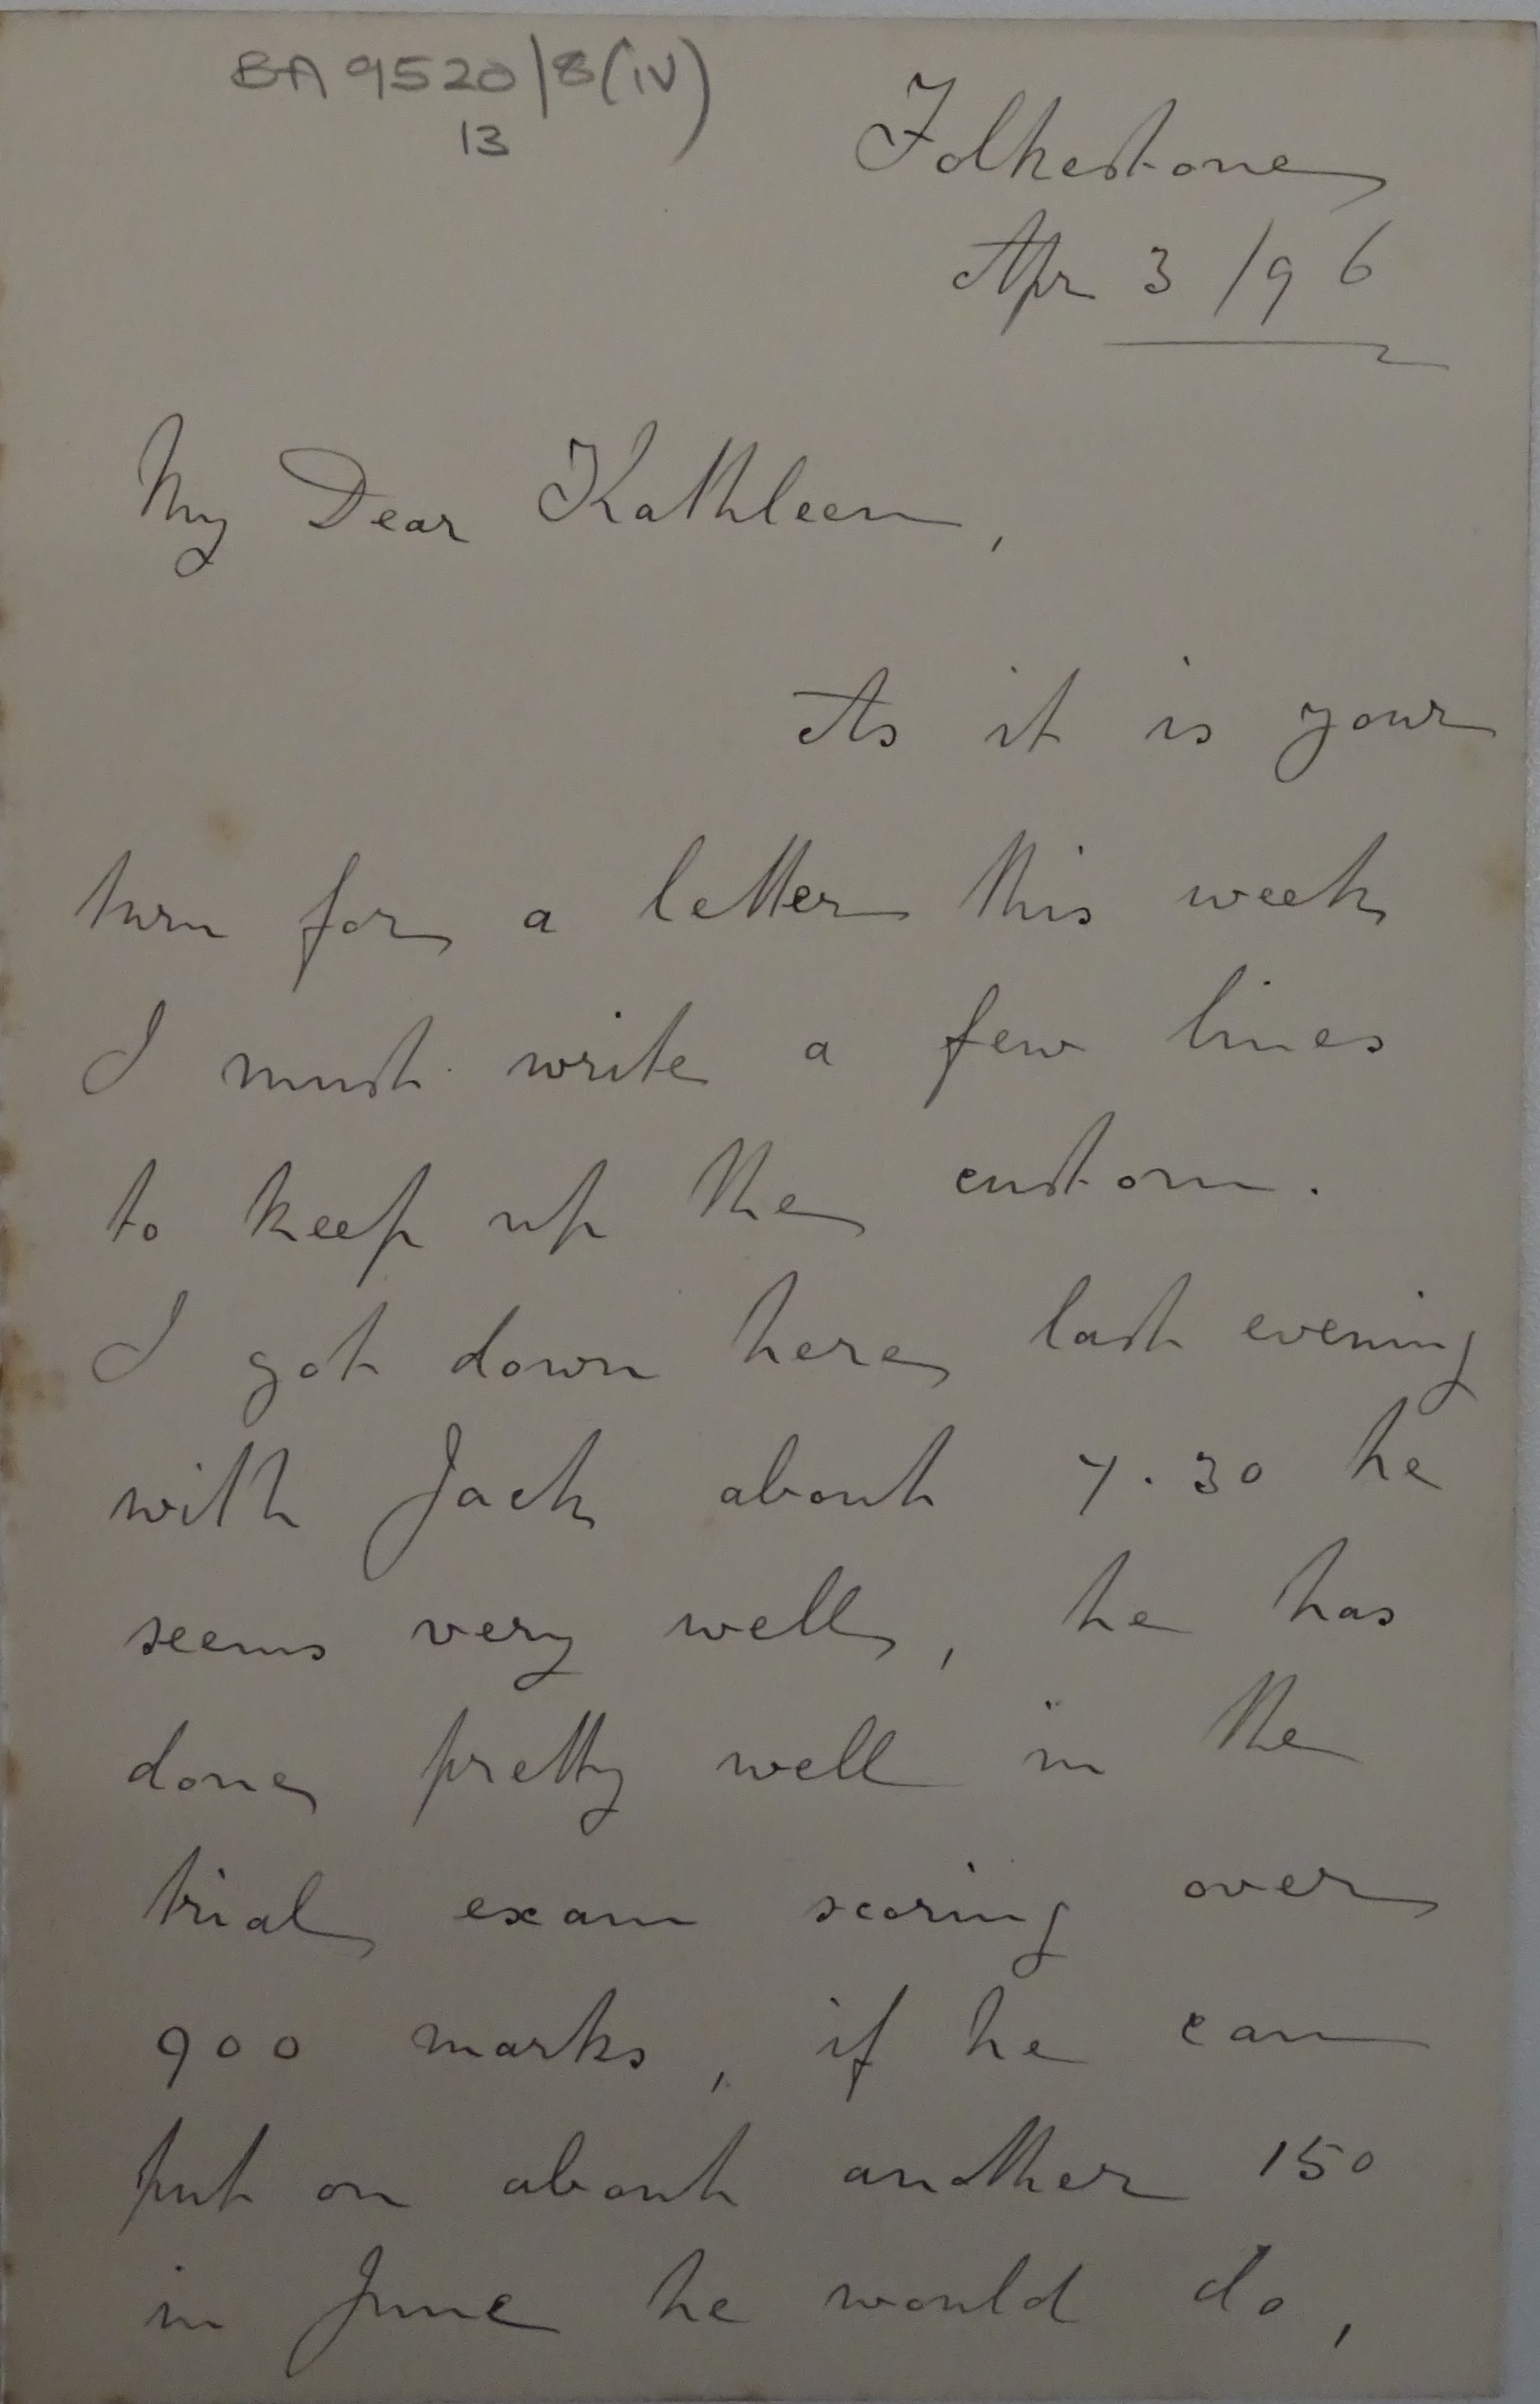 BA 9520/8(iv)
13
Folkestone
Apr 3/96
My Dear Kathleen,
As it is your
turn for a letter this week
I must write a few lines
to keep up the custom.
I got down here last evening
with Jack about 7.30 he
seems very well, he has
done pretty well in the
trial exam scoring over
900 marks, if he can
put on about another 150
in June he would do,